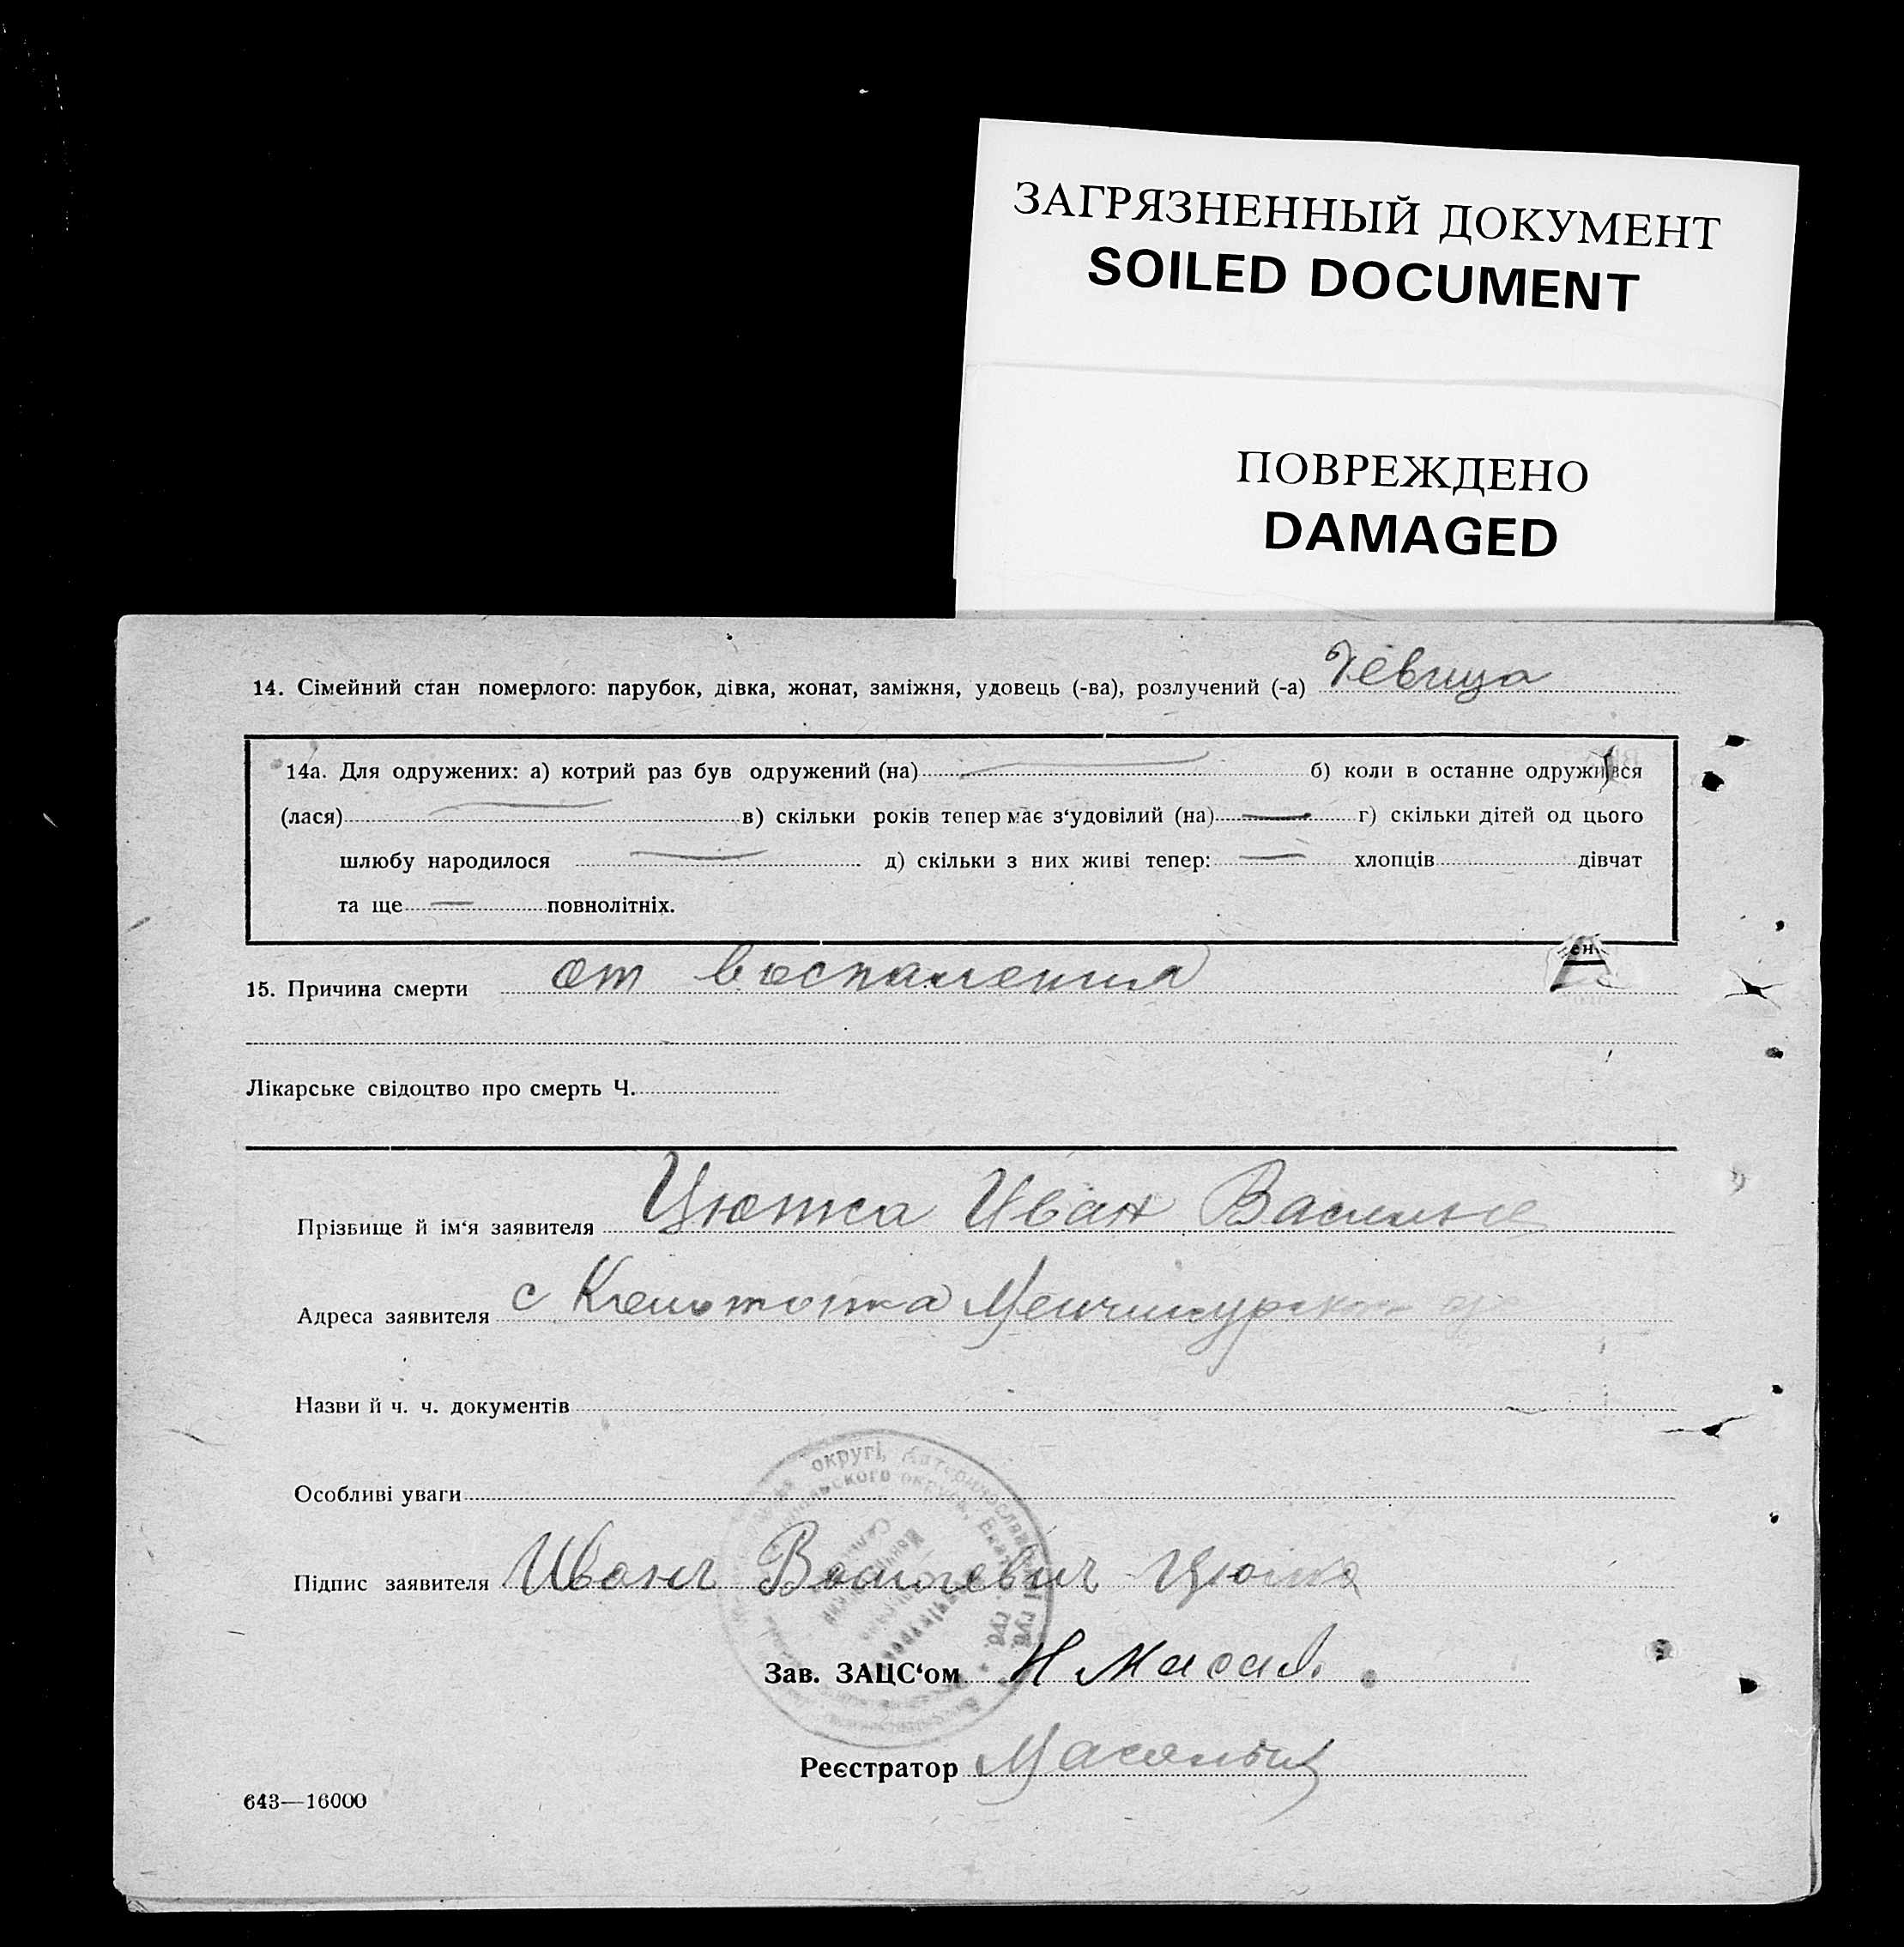 ЗАГРЯЗНЕННЫЙ ДОКУМЕНТ
SOILED DOCUMENT
ПОВРЕЖДЕНО
DAMAGED
14. Сімейний стан померлого: парубок, дівка, жонат, заміжня, удовець (-ва), розлучений (-а) девица
14а. Для одружених: а) котрий раз був одружений (на) б) коли в останнє одружився
(лася) в) скільки років тепер має з‘удовілий (на) г) скільки дітей од цього
шлюбу народилося д) скільки з них живі тепер: хлопців дівчат
та ще повнолітніх.
15. Причина смерти от воспаления
Лікарське свідоцтво про смерть Ч.
Прізвище й ім‘я заявителя Цютка Иван
Адреса заявителя с
Назви й ч. ч. документів
Особливі уваги
округі,
Підпис заявителя Иван Васильевич
Зав. ЗАЦС‘ом Н
Реєстратор
643—16000